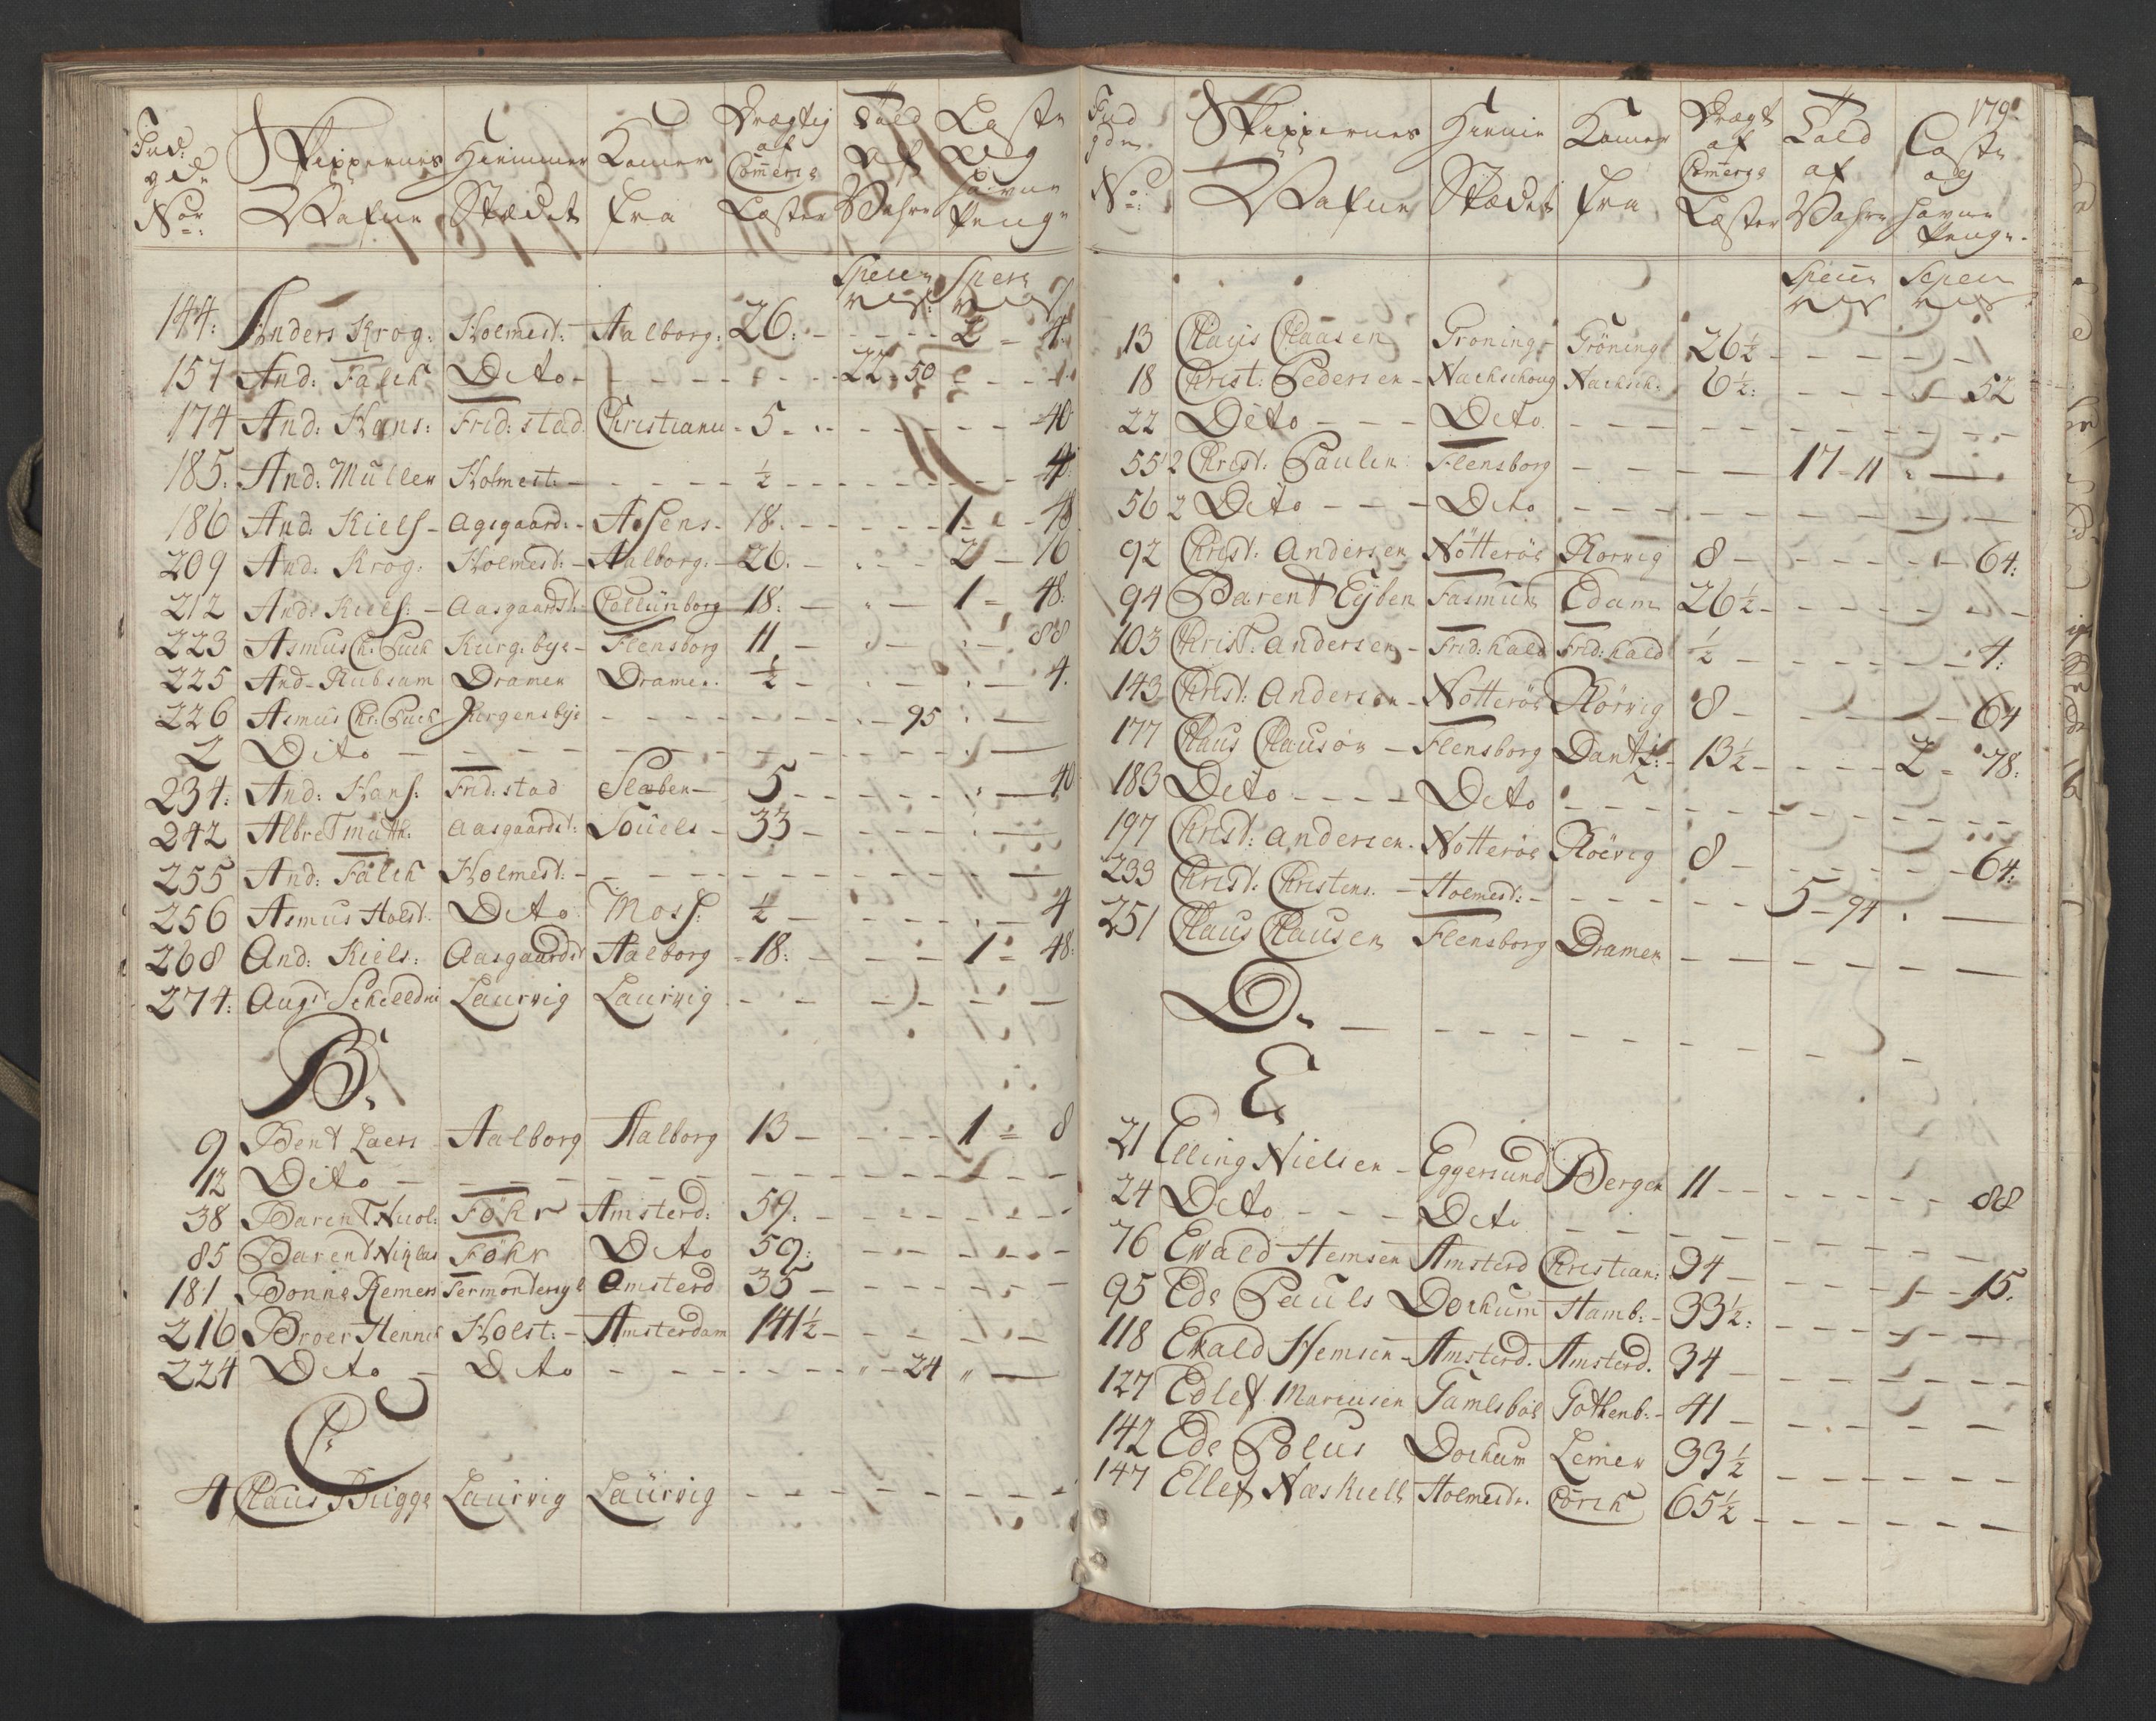 Ind:
gde
No:
Skippernes
Nafne
Hiemmer
Stædet
Komer
fra
Drægtig
af
Comerce
Læster
Told
Af
Vahre
Læste
og
havne
Penge
Specie Specie
144: Anders Krog: Holmest: Aalborg: 26: - - - - 2 - 4
157 And: Falck Dito - - - - - - 22 50 - -
174 And: Hans: Frid: stad Christiania - 5 - - - - - 40
185. And: Muller Holmest: - - - - ½ - - - - - 4
186 And: Kiels - Agsgaard: - Assens - 18. - - - - 1 - - 48
209 And: Krog: Holmest: - Aalborg: - 26. - - - 2 - 16
212 And: Kiels: - Aasgaardst: Callunborg 18: - - - 1 - 48:
223 Asmus Ch: Puck Kurg: bye - Flensborg 11 - - - - 88
225 And - Rubsam Dramen Dramen. ½ - - - - 4.
226 Asmus Chr: Puck Jørgensbye - - - - - - - 95 . -
2 Dito - - - - - - - - - -
234: And: Hans: Frid: stad Slæben - 5 - - - - - 40
242 Albret Math: Aasgaardst: 33 - - - - -
255 And: Falck Holmest: - - - - - - - -
256 Asmus Holst. Dito Moss: ½ - - - - - 4
268 And: Kiels: Aasgaardst Aalborg - 18: - - - 1 = 48:
274: Aug: Laurvig Laurvig - - - - - -
B.
9 Bent Laers Aalborg Aalborg 13 - - - - 1 = 8
12 Dito - - - - - - - - - -
38 Barent Nicol: Föhr Amsterd: 59: - - - - -
85 Barent Niglas Föhr Dito 59: - - - - -
181 Bonne Remers Termonterzyl Amsterd 35 - - - - -
216 Broer Hennes Holst: - Amsterdam 141½ - - - - -
224 Dito - Dito - - - - - - " - 24 " -
C:
4 Claus Bugge Laurvig Laurvig - - - - - -
179
Ind
gde
No:
Skippernes
Nafne
Hiemme
Stædet
Komer
fra
Drægt
af
Comerce
Læster
Told
af
Vahre
Læste
og
havne
Penge.
Specie Specie
13 Claus Claasen Groning - Gröning 26½ - - - - -
18 Christ: Pedersen - Nachschoug Nachsch: 6½: - - - - 52
22 Dito - - - Dito. - - - - - - - -
55 2 Christ: Paulen Flensborg - - - - 17 - 11 " -
56 2 Dito - - - Dito - - - - - - - -
92 Christ: Andersen Nötteröe Rorvig 8 - - - - - 64:
94 Barent Eyben Fasmun Edam 26½ - - - - -
103 Christ: Andersen - Frid: hald Frid: hald ½ - - - - - 4:
143 Christ: Andersen - Notteröe Rörvig 8 - - - - - 64
177 Claus Clausen - Flensborg Dantz: - 13½ - - - 2 - 78:
183 Dito - - - - Dito - - - - - - - -
197 Christ: Andersen. Notteröe Röervig 8 - - - - - 64:
233 Christ: Christens. - Holmest: - - - - - 5 - 94 . -
251 Claus Clausen Flensborg Dramen - - - - - -
D. - - - - - - - -
E
21 Elling Nielsen - Eggersund Bergen 11 - - - - - - 88
24 Dito - - - Dito - - - - - - -
76 Ewald Hemsen Amsterd Christian: 34 - - - 1 - 15.
95 Ede Pauls Dockum Hamb: - 33½: - - - - -
118 Ewald Hemsen - Amsterd. Amsterd. 34 - - - - -
127 Edlef Marcusen Gamlsböl Gothenb: - 41 - - - - -
142 Ede Polus Dockum Lemer 33½ - - - - -
147 Ellef Næskiell Holmest. Corck 65½ - - - - -